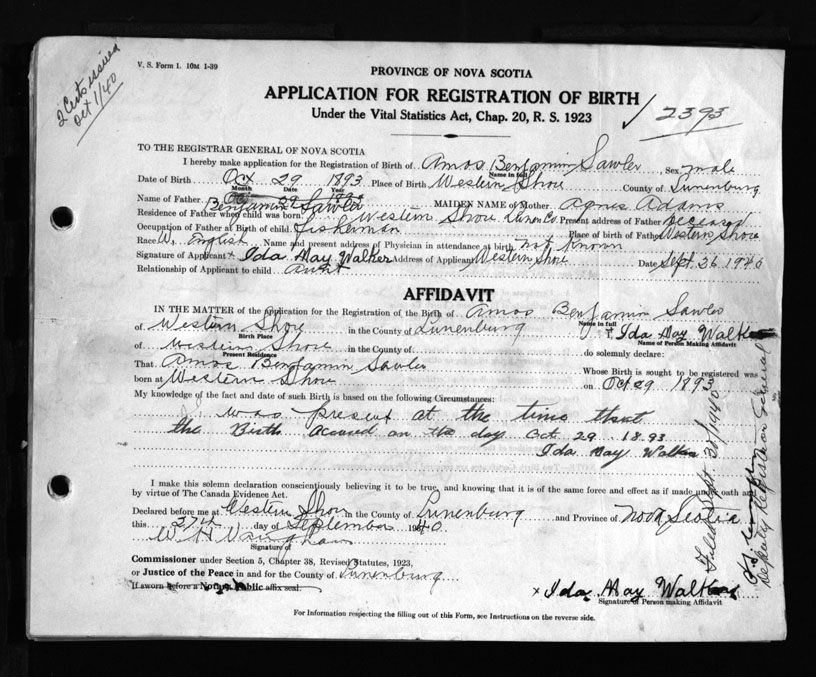 V. S. Form 1. 10M 1-39
2 Certs issued
Oct 1/40
PROVINCE OF NOVA SCOTIA
APPLICATION FOR REGISTRATION OF BIRTH
Under the Vital Statistics Act, Chap. 20, R. S. 1923
✓ 2393
TO THE REGISTRAR GENERAL OF NOVA SCOTIA
I hereby make application for the Registration of Birth of Amos Benjamin Sawler Sex male
Name in full
Date of Birth Oct 29 1893 Place of Birth Western Shore County of Lunenburg
Month Date Year
Name of Father Benjamin Sawler MAIDEN NAME of Mother Agnes Adams
Residence of Father when child was born Western Shore Lunen Co. Present address of Father deceased
Occupation of Father at Birth of child fisherman Place of birth of Father Western Shore
Race W. English Name and present address of Physician in attendance at birth not known
Signature of Applicant x Ida May Walker Address of Applicant Western Shore Date Sept. 26 1940
Relationship of Applicant to child aunt
AFFIDAVIT
IN THE MATTER of the Application for the Registration of the Birth of Amos Benjamin Sawler
Name in full
of Western Shore in the County of Lunenburg I x Ida May Walker
Birth Place Name of Person Making Affidavit
of Western Shore in the County of do solemnly declare:
Present Residence
That Amos Benjamin Sawler Whose Birth is sought to be registered was
born at Western Shore on Oct 29 1893
My knowledge of the fact and date of such Birth is based on the following Circumstances:
I was present at the time that
the Birth accured on the day Oct 29 1893
Ida May Walker
I make this solemn declaration conscientiously believing it to be true, and knowing that it is of the same force and effect as if made under oath and
by virtue of The Canada Evidence Act.
Declared before me at Western Shore in the County of Lunenburg and Province of Nova Scotia
this 27th day of September 1940.
Signature of
Commissioner under Section 5, Chapter 38, Revised Statutes, 1923,
or Justice of the Peace in and for the County of Lunenburg
If sworn before a Notary Public affix seal.
x Ida May Walker
Signature of Person making Affidavit
For Information respecting the filling out of this Form, see Instructions on the reverse side.
Filed Sept. 30/1940
Deputy Registrar General